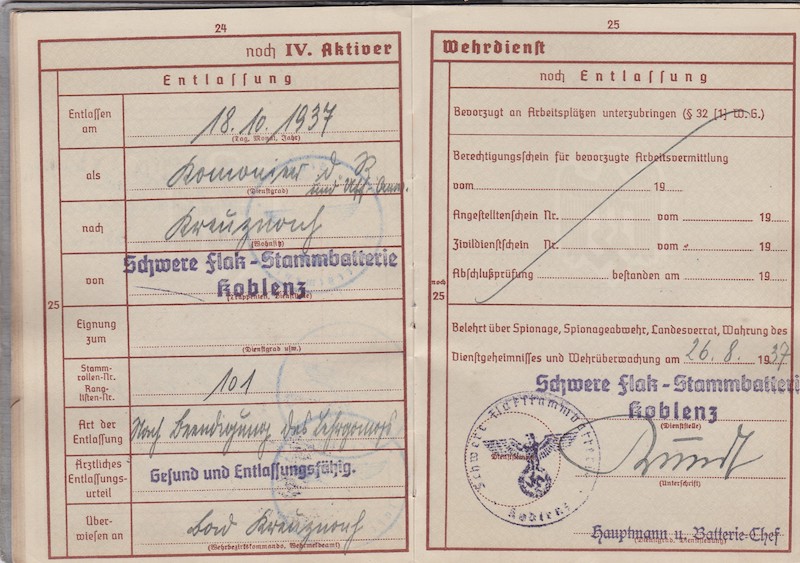 24
noch IV. Aktiver
Entlassung
Entlassen am
18. 10. 1937
(Tag, Monat, Jahr)
als
Kanonier d. R.
und Uffz. Anw.
(Dienstgrad)
nach
Kreuznach
(Wohnsitz)
von
Schwere Flak-Stammbatterie
Koblenz
(Truppenteil, Dienststelle)
25
Eignung zum
(Dienstgrad usw.)
Stamm-
rollen-Nr.
Rang-
listen-Nr.
101
Art der
Entlassung
Nach Beendigung des Lehrgangs
Ärztliches
Entlassungs-
urteil
Gesund und Entlassungsfähig.
Über-
wiesen an
Bad Kreuznach
(Wehrbezirkskommando, Wehrmeldeamt)
25
Wehrdienst
noch Entlassung
Bevorzugt an Arbeitsplätzen unterzubringen (§ 32 [1] W. G.)
Berechtigungsschein für bevorzugte Arbeitsvermittlung
vom 19
Angestelltenschein Nr. vom 19
Zivildienstschein Nr. vom 19
Abschlußprüfung bestanden am 19
noch
25
Belehrt über Spionage, Spionageabwehr, Landesverrat, Wahrung des
Dienstgeheimnisses und Wehrüberwachung am 26. 8. 1937
Schwere Flak-Stammbatterie
Koblenz
(Dienststelle)
Schwere Flakstammbatterie
Koblenz
(Unterschrift)
Hauptmann u. Batterie-Chef
(Dienstgrad, Dienststellung)